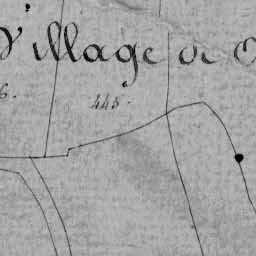 Village de
445.